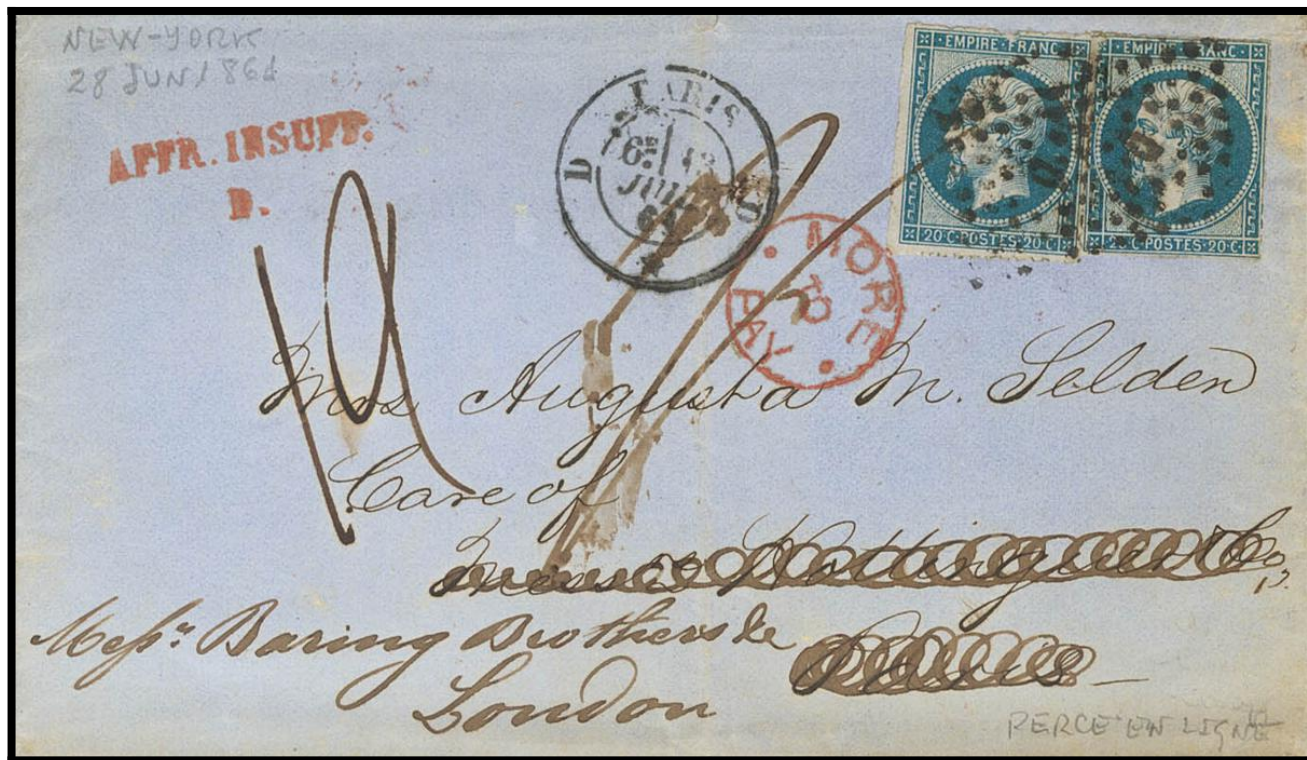 NEW-YORK
28 JUN 1861
AFFR. INSUFF.
D.
PARIS
D
6E
JUIL
61
D
MORE
TO
PAY
EMPIRE FRANC
20 C POSTES 20 C
EMPIRE FRANC
20 C POSTES 20 C
Mrs Augusta M. Selden
Care of
Messrs Hottinguer & Co
Messrs Baring Brothers &c
Paris
London
PERCE EN LIGNE